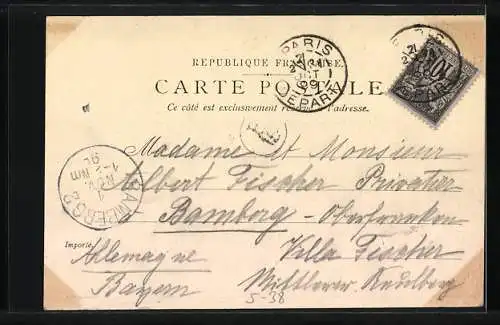 PARIS
DEPART
RÉPUBLIQUE FRANÇAISE.
CARTE POSTALE
Ce côté est exclusivement réservé à l'adresse.
Madame et Monsieur
Albert Fischer Privatier
Bamberg - Oberfranken
Importé.
Allemagne Villa Fischer
Bayern Mittlerer Kaulberg
BAMBERG 2
5-38